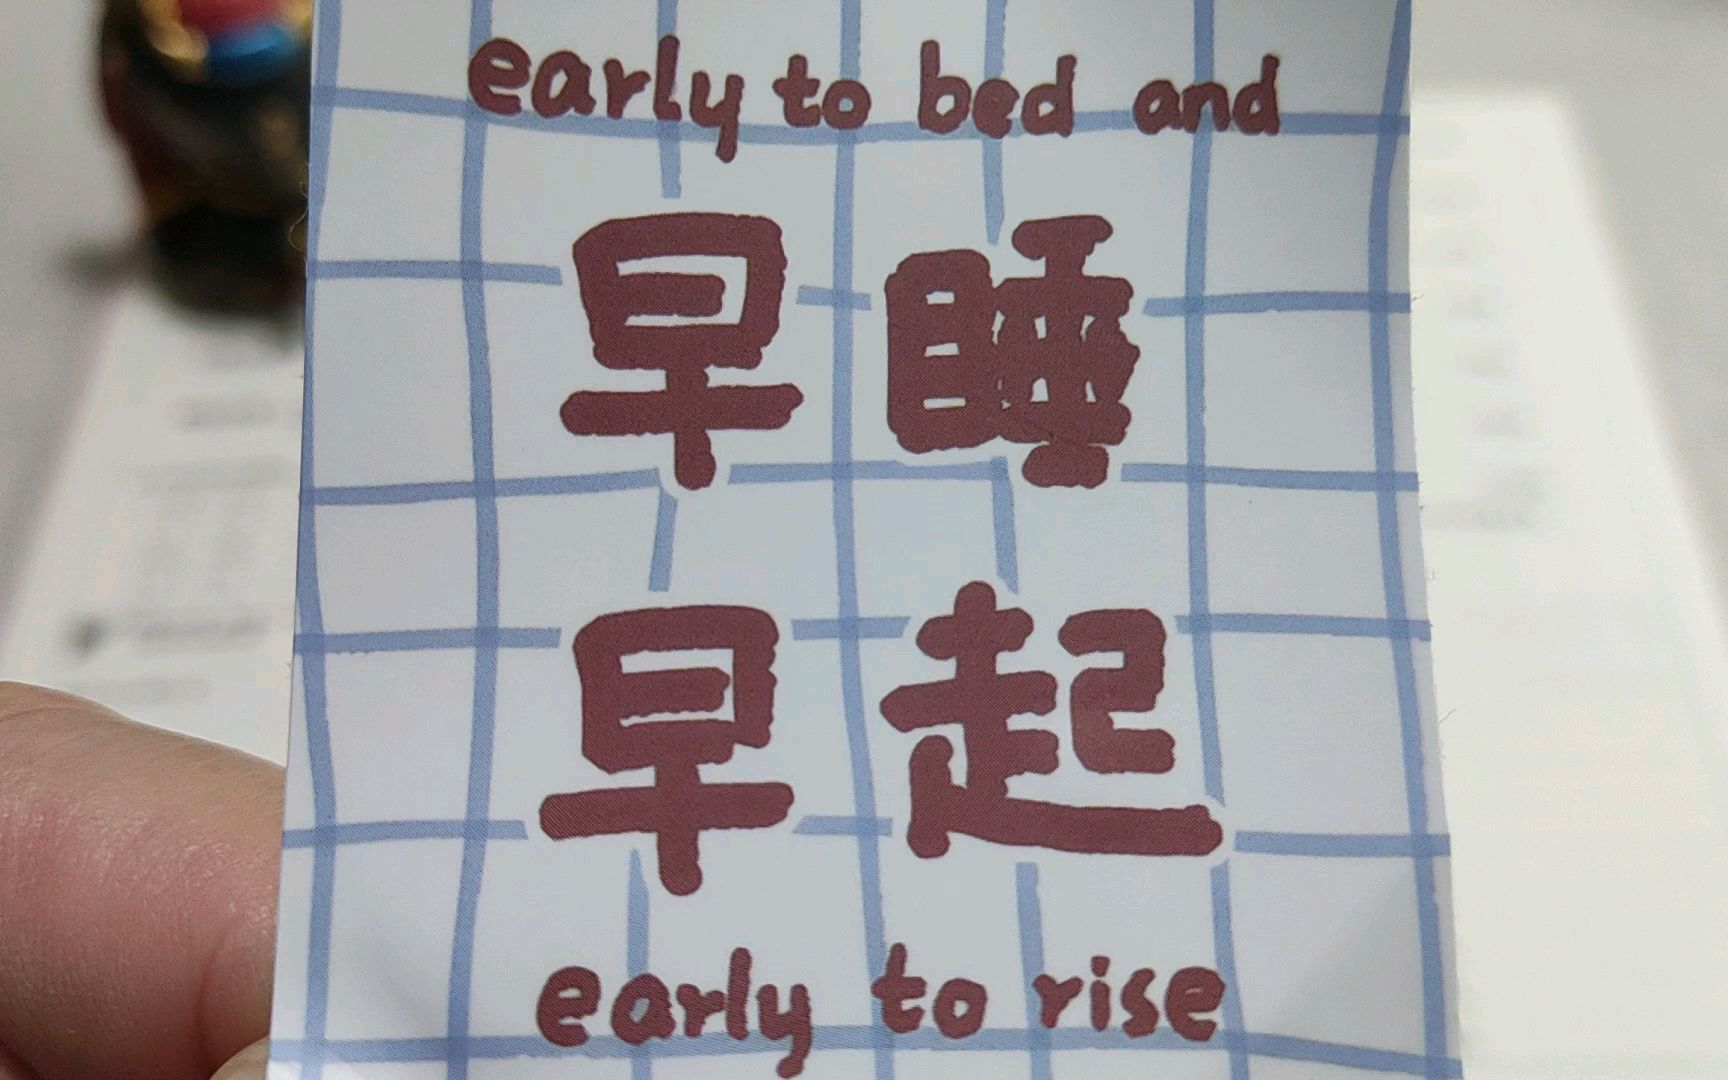 early to bed and
早睡
早起
early to rise